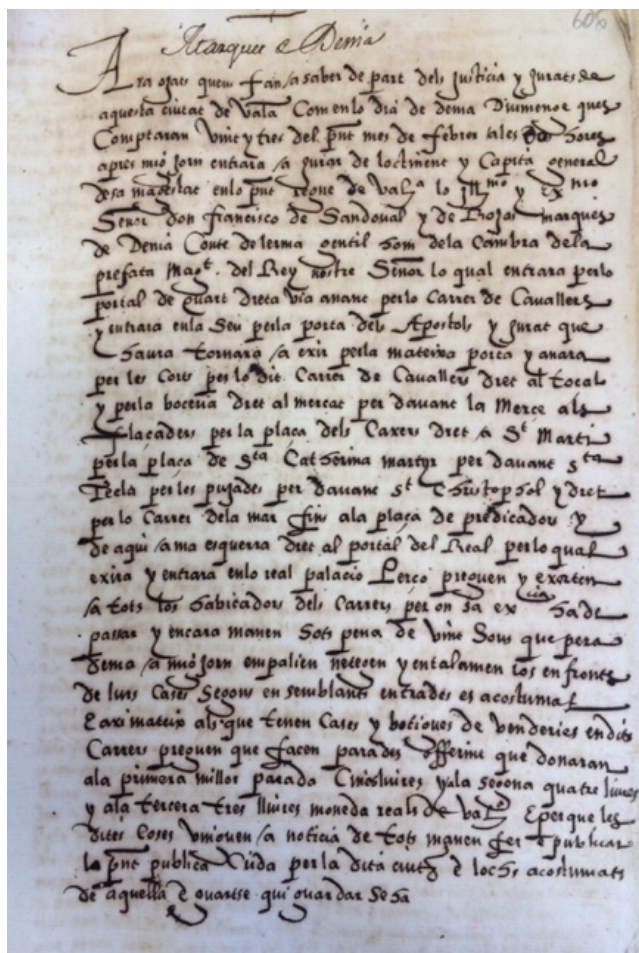 605
Marques de Denia
Ara ojats queus fan a saber de part dels Justicia y Jurats de
aquesta ciutat de Valª Com en lo dia de dema Diumenge ques
Comptaran vint y tres del pnt mes de febrer a les dos hores
apres mig jorn entrara a jurar de loctinent y Capita general
de sa magestat en lo pnt regne de Valª lo Illmo y Exmo
Señor don Francisco de Sandoval y de Rojas marques
de Denia Conte de lerma gentil hom de la Cambra de la
prefata Magt. del Rey nostre Señor lo qual entrara per lo
portal de quart dreta via anant per lo Carrer de Cavallers
y entrara en la Seu per la porta dels Apostols y jurat que
haura tornara a exir per la mateixa porta y anara
per les Corts per lo dit Carrer de Cavallers dret al tocal
y per la boceria dret al mercat per davant la Merce als
flaçaders per la plaça dels Caxers dret a St Marti
per la plaça de Sta Catherina martyr per davant sta
Tecla per les pujades per davant st Christophol y dret
per lo Carrer de la mar fins a la plaça de predicadors y
de aqui a ma esquerra dret al portal del Real per lo qual
exira y entrara en lo real palacio Perço preguen y exorten
a tots los habitadors dels Carrers per on sa excia ha de
passar y encara manen sots pena de vint sous que pera
dema a mig jorn empalien netegen y entalamen los enfronts
de lurs Cases segons en semblants entrades es acostumat
E aximateix als que tenen Cases y botigues de venderies en dits
Carrers preguen que facen parades offerint que donaran
a la primera millor parada Cinch liures y a la segona quatre liures
y a la tercera tres lliures moneda reals de Valª E perque les
dites Coses vinguen a noticia de tots manen fer e publicar
la pnt publica Crida per la dita ciutat e lochs acostumats
de aquella E guartse qui guardar se ha